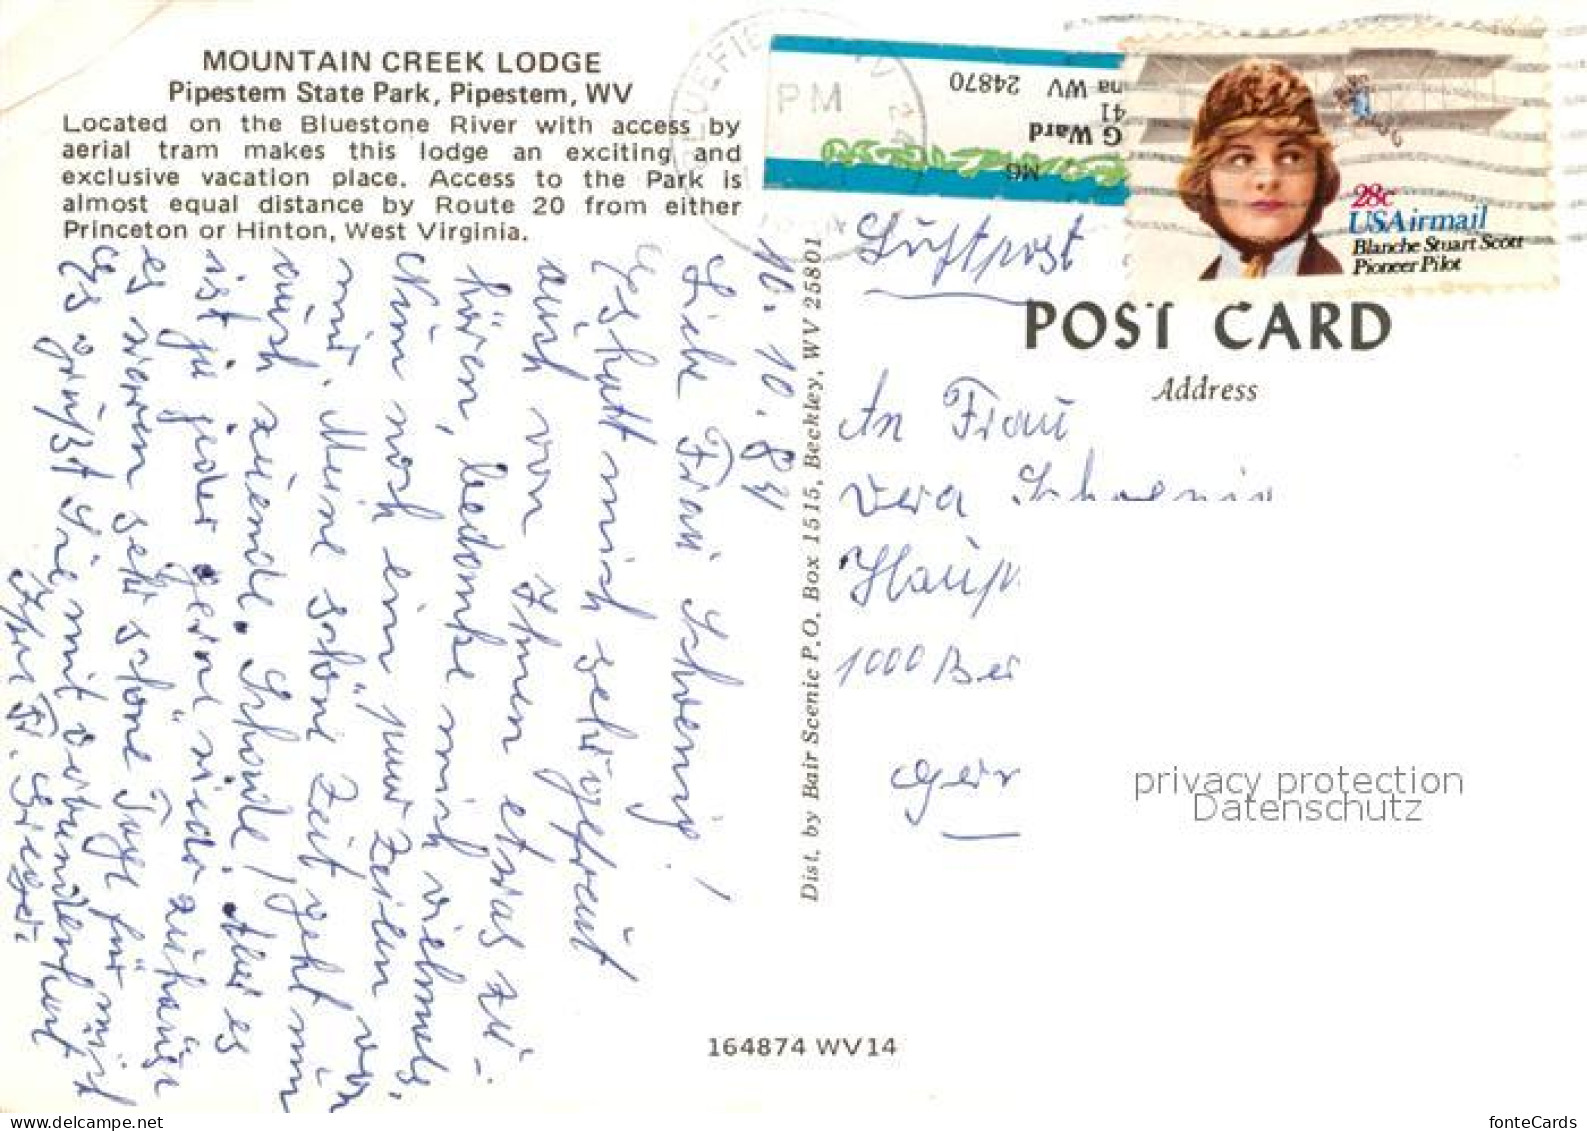 MOUNTAIN CREEK LODGE
Pipestem State Park, Pipestem, WV
Located on the Bluestone River with access by
aerial tram makes this lodge an exciting and
exclusive vacation place. Access to the Park is
almost equal distance by Route 20 from either
Princeton or Hinton, West Virginia.
16. 10. 84
Liebe Frau Schoenig!
Es hatt mich sehr gefreut
auch von Ihnen etwas zu-
hören, bedanke mich vielmals.
Nun noch ein paar Zeilen von
mir. Meine schöne Zeit geht nun
auch zuende. Schade! Aber es
ist ja jeder gerne wieder zuhause
es waren sehr schöne Tage für mich
Es grüßt Sie mit verbundenheit
Ihre Fr.
Dist. by Bair Scenic P.O. Box 1515, Beckley, WV 25801
PM
G Ward
41
na WV 24870
M6
28c
USAirmail
Blanche Stuart Scott
Pioneer Pilot
Luftpost
POST CARD
Address
An Frau
Vera Schoenig
Haup
1000 Ber
Ger
privacy protection
Datenschutz
164874 WV14
fonteCards